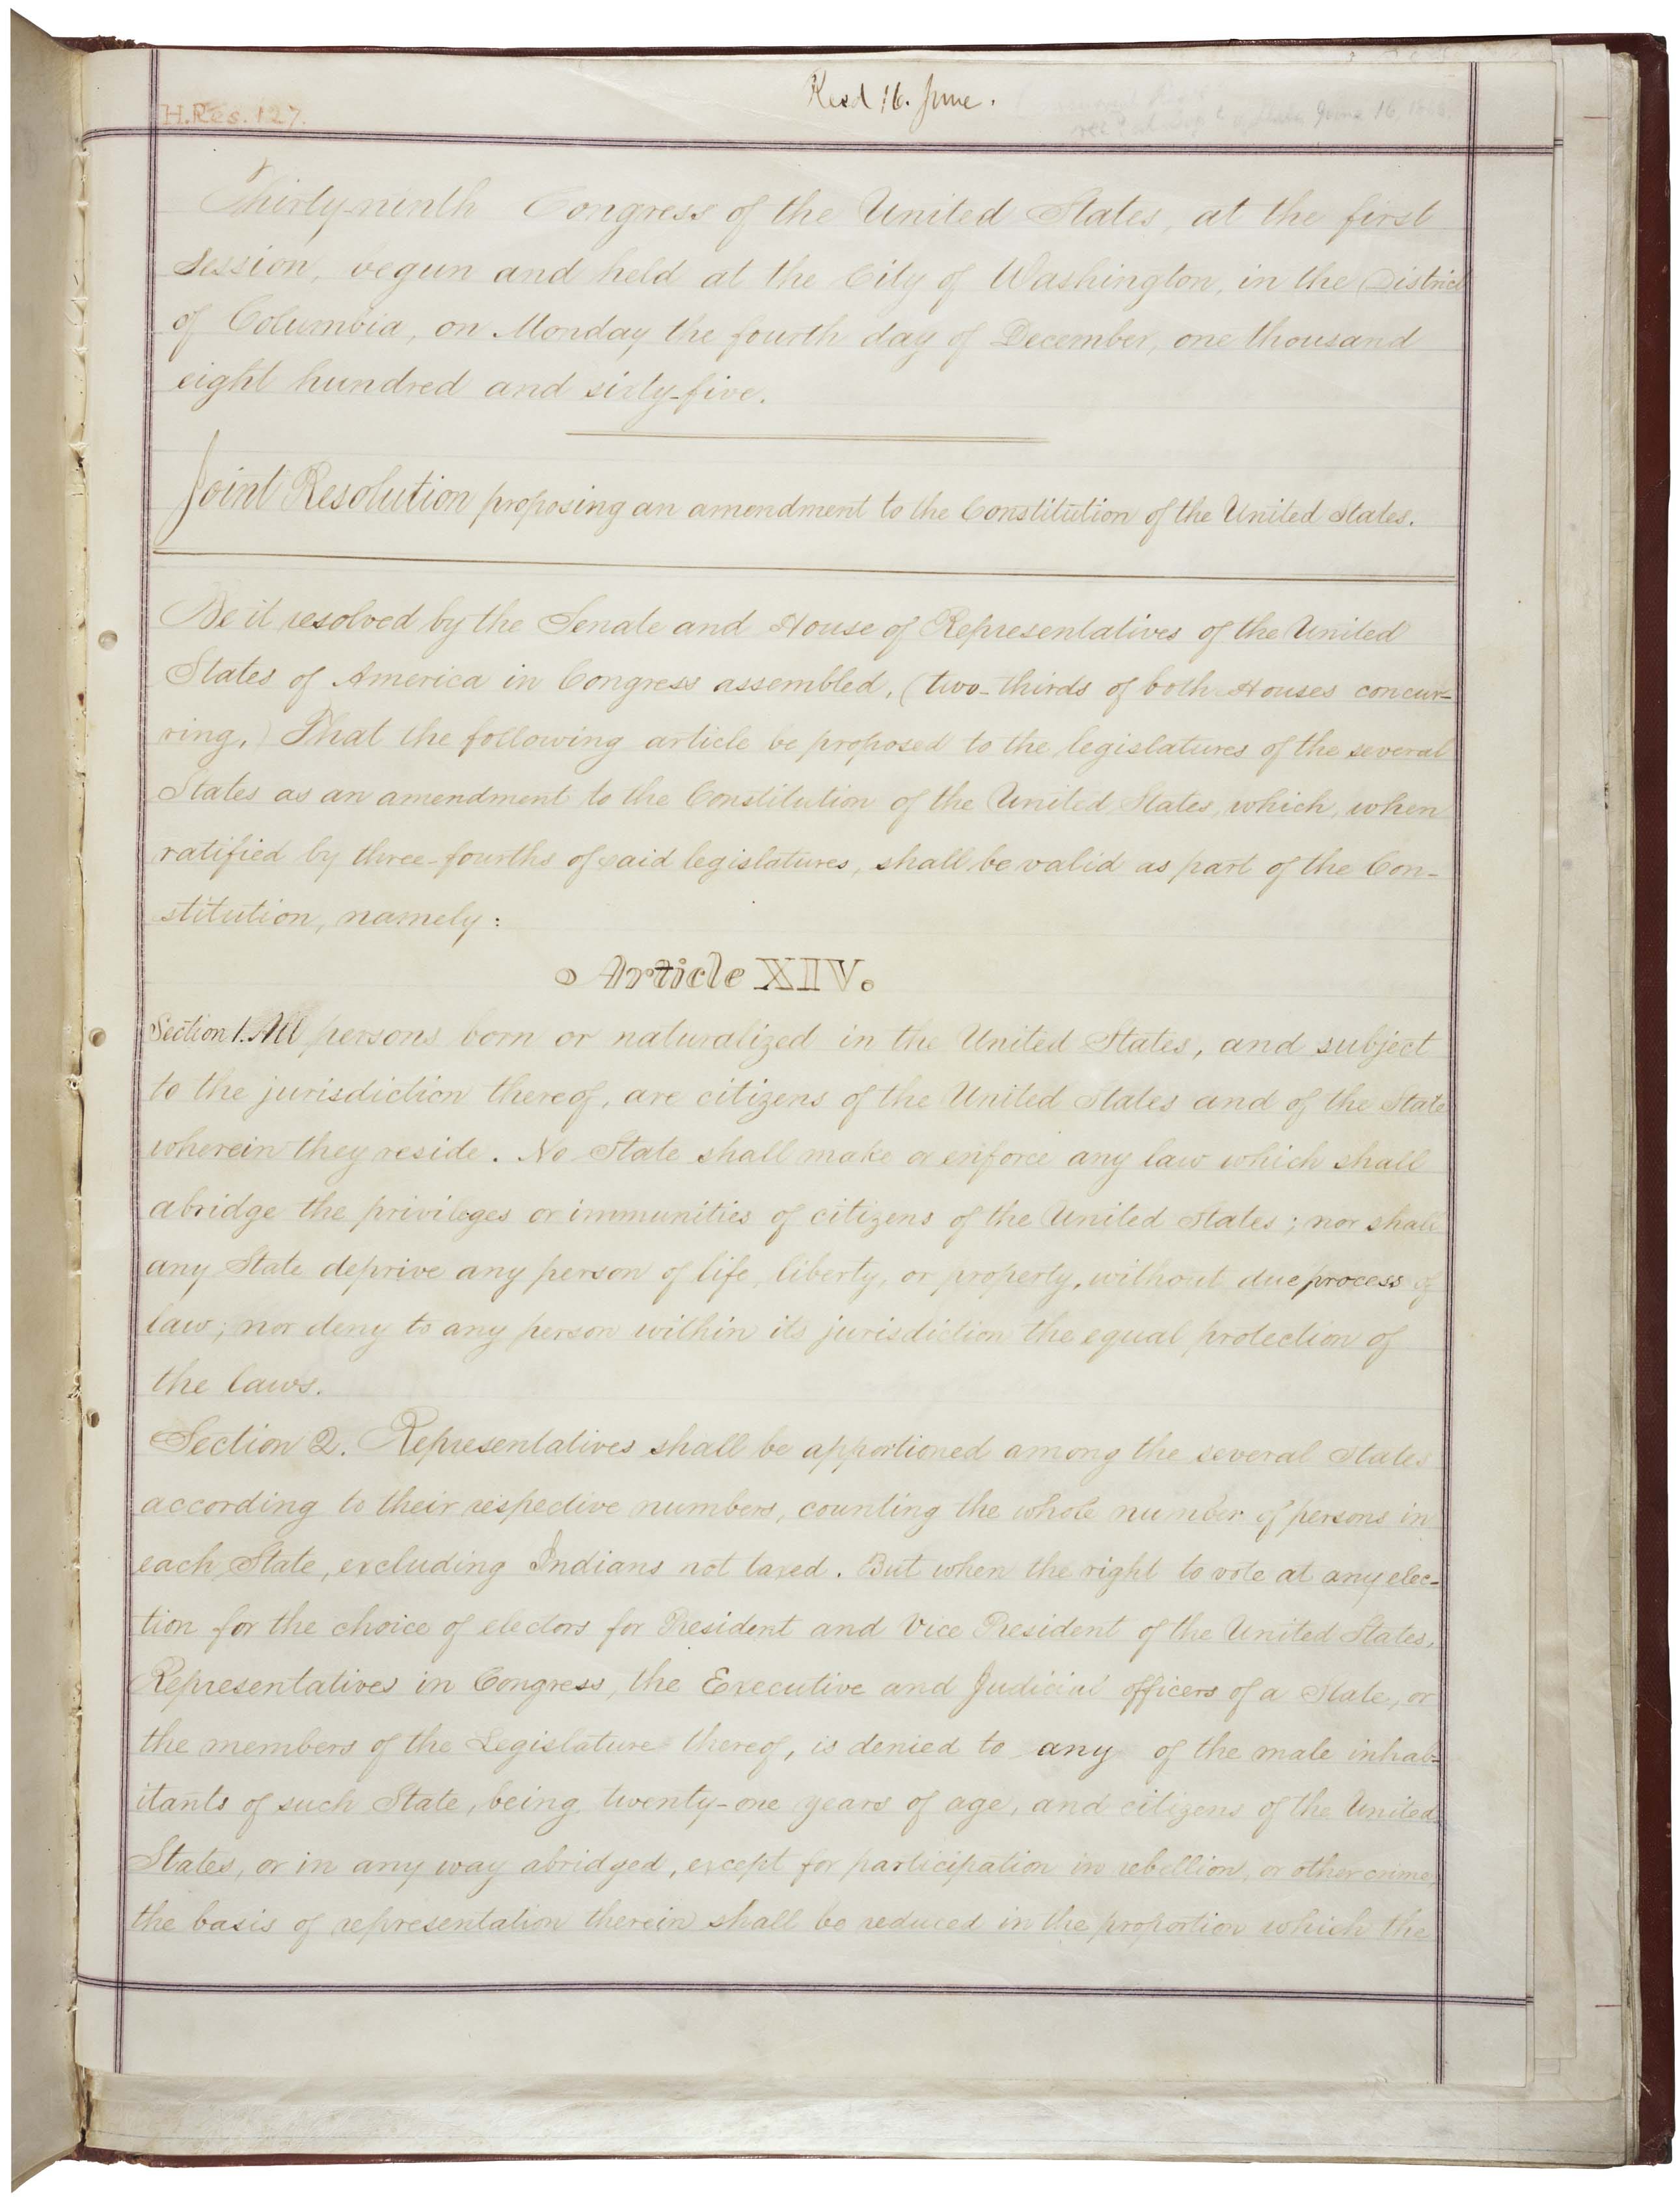 H.Res. 127.
Recd 16. June.
June 16, 1866.
Thirty-ninth Congress of the United States, at the first
Session, begun and held at the City of Washington, in the District
of Columbia, on Monday the fourth day of December, one thousand
eight hundred and sixty-five.
Joint Resolution proposing an amendment to the Constitution of the United States.
Be it resolved by the Senate and House of Representatives of the United
States of America in Congress assembled, (two-thirds of both Houses concur-
ring,) That the following article be proposed to the legislatures of the several
States as an amendment to the Constitution of the United States, which, when
ratified by three-fourths of said legislatures, shall be valid as part of the Con-
stitution, namely:
Article XIV.
Section 1. All persons born or naturalized in the United States, and subject
to the jurisdiction thereof, are citizens of the United States and of the State
wherein they reside. No State shall make or enforce any law which shall
abridge the privileges or immunities of citizens of the United States; nor shall
any State deprive any person of life, liberty, or property, without due process of
law; nor deny to any person within its jurisdiction the equal protection of
the laws.
Section 2. Representatives shall be apportioned among the several States
according to their respective numbers, counting the whole number of persons in
each State, excluding Indians not taxed. But when the right to vote at any elec-
tion for the choice of electors for President and Vice President of the United States,
Representatives in Congress, the Executive and Judicial officers of a State, or
the members of the Legislature thereof, is denied to any of the male inhab-
itants of such State, being twenty-one years of age, and citizens of the United
States, or in any way abridged, except for participation in rebellion, or other crime,
the basis of representation therein shall be reduced in the proportion which the